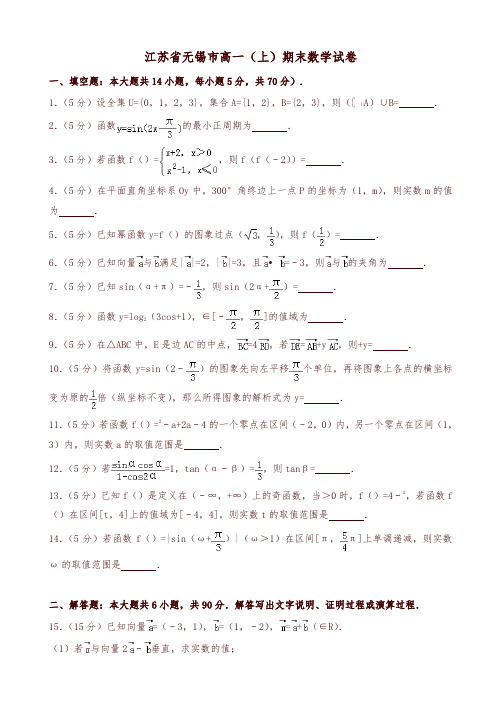 江苏省无锡市高一（上）期末数学试卷
一、填空题：本大题共14小题，每小题5分，共70分）．
1．（5分）设全集U={0，1，2，3}，集合A={1，2}，B={2，3}，则（∁UA）∪B=　　．
2．（5分）函数y=sin(2x-π/3)的最小正周期为　　．
3．（5分）若函数f（）={x+2，x>0；x²-1，x≤0，则f（f（﹣2））=　　．
4．（5分）在平面直角坐标系Oy中，300°角终边上一点P的坐标为（1，m），则实数m的值
为　　．
5．（5分）已知幂函数y=f（）的图象过点（√3，1/3），则f（1/2）=　　．
6．（5分）已知向量a与b满足|a|=2，|b|=3，且a•b=﹣3，则a与b的夹角为　　．
7．（5分）已知sin（α+π）=﹣1/3，则sin（2α+π/2）=　　．
8．（5分）函数y=log₂（3cos+1），∈[﹣π/2，π/2]的值域为　　．
9．（5分）在△ABC中，E是边AC的中点，BC=4BD，若DE=AB+yAC，则+y=　　．
10．（5分）将函数y=sin（2﹣π/3）的图象先向左平移π/3个单位，再将图象上各点的横坐标
变为原的1/2倍（纵坐标不变），那么所得图象的解析式为y=　　．
11．（5分）若函数f（）=²﹣a+2a﹣4的一个零点在区间（﹣2，0）内，另一个零点在区间（1，
3）内，则实数a的取值范围是　　．
12．（5分）若sinαcosα/(1-cos2α)=1，tan（α﹣β）=1/3，则tanβ=　　．
13．（5分）已知f（）是定义在（﹣∞，+∞）上的奇函数，当>0时，f（）=4﹣²，若函数f
（）在区间[t，4]上的值域为[﹣4，4]，则实数t的取值范围是　　．
14．（5分）若函数 f（）=|sin（ω+π/3）|（ω>1）在区间[π，5/4π]上单调递减，则实数
ω的取值范围是　　．
二、解答题：本大题共6小题，共90分．解答写出文字说明、证明过程或演算过程．
15．（15分）已知向量a=（﹣3，1），b=（1，﹣2），m=a+b（∈R）．
（1）若m与向量2a﹣b垂直，求实数的值；